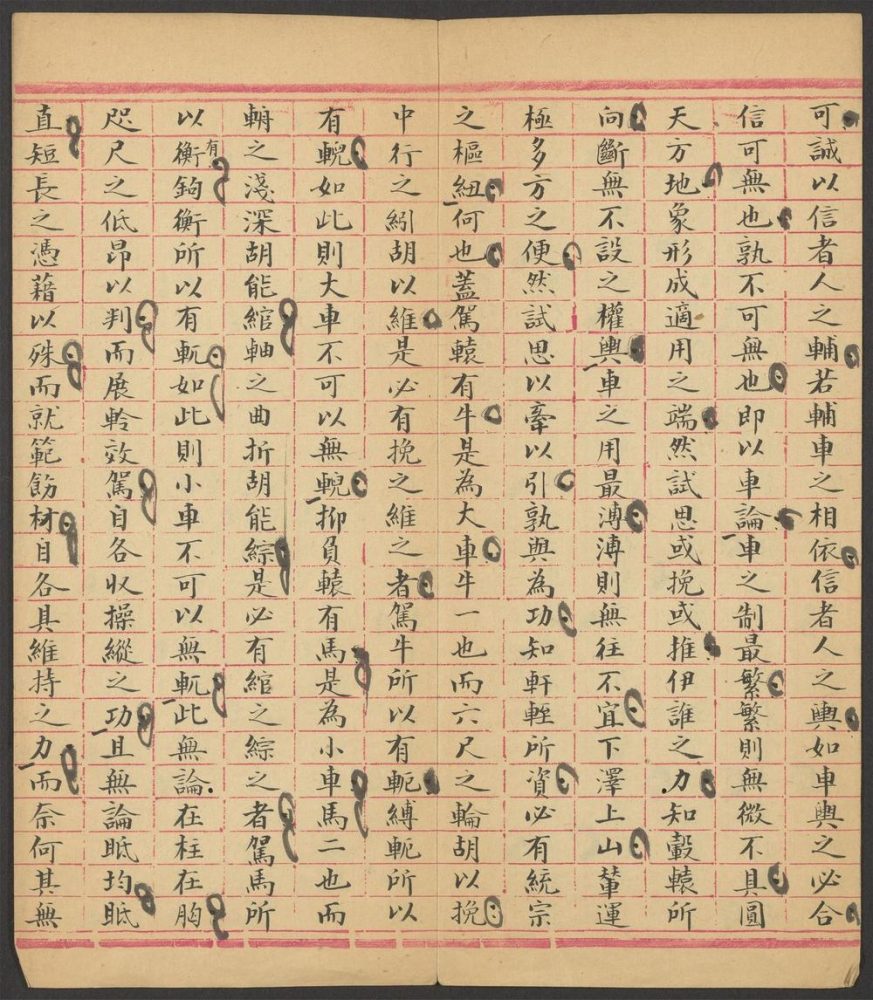 可誠以信者人之輔若輔車之相依信者人之輿如車輿之必合
信可無也孰不可無也即以車論車之制最繁繁則無微不具圓
天方地象形成適用之端然試思或挽或推伊誰之力知轂轅所
向斷無不設之權輿車之用最溥溥則無往不宜下澤上山輦運
極多方之便然試思以牽以引孰與為功知軒輊所資必有統宗
之樞紐何也蓋駕轅有牛是為大車牛一也而六尺之輪胡以挽
中行之紖胡以維是必有挽之維之者駕牛所以有軛縛軛所以
有輗如此則大車不可以無輗抑負轅有馬是為小車馬二也而
輈之淺深胡能綰軸之曲折胡能綜是必有綰之綜之者駕馬所
以有衡鉤衡所以有軏如此則小車不可以無軏此無論在柱在胸
咫尺之低昂以判而展軨效駕自各收操縱之功且無論眡均眡
直短長之憑藉以殊而就範飭材自各具維持之力而奈何其無